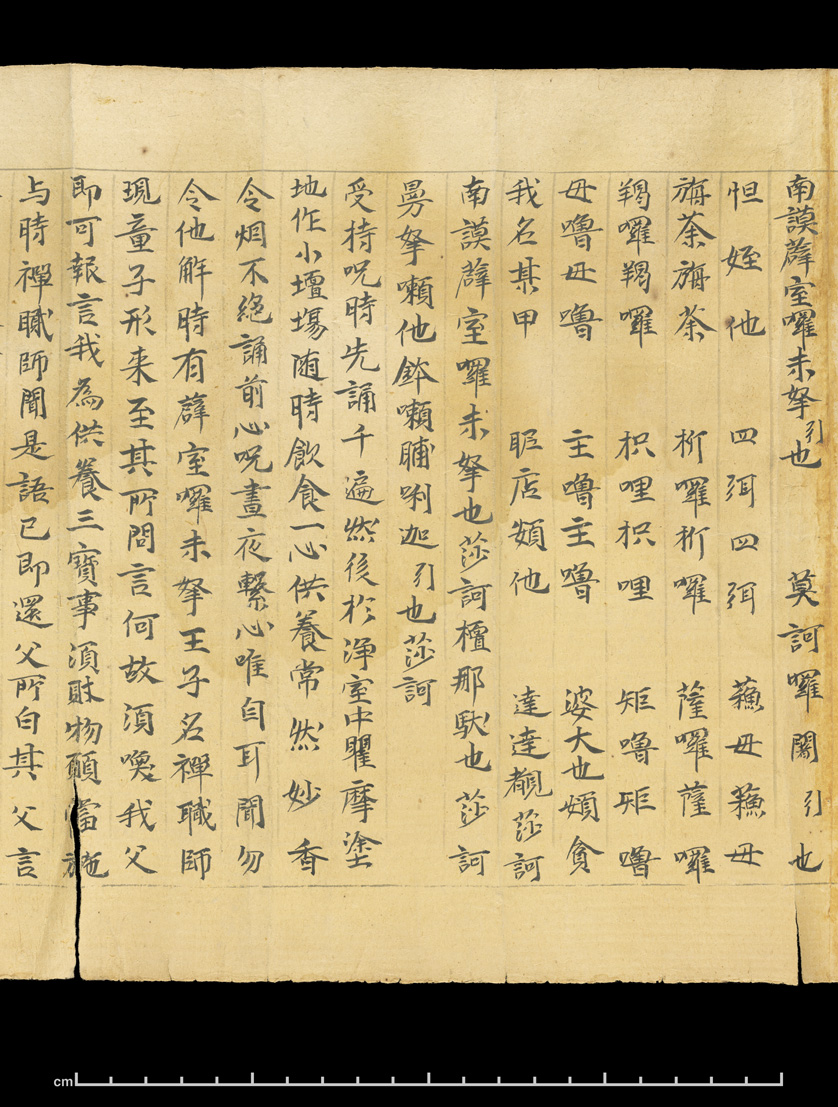 南謨薜室囉末拏引也 莫訶囉闍引也
怛姪他 四弭四弭 蘓母蘓母
旃荼旃荼 折囉折囉 薩囉薩囉
羯囉羯囉 枳哩枳哩 矩嚕矩嚕
母嚕母嚕 主嚕主嚕 婆大也頞貪
我名某甲 昵店頞他 達達覩莎訶
南謨薜室囉末拏也莎訶檀那馱也莎訶
曼拏嬾他鉢嬾脯唎迦引也莎訶
受持呪時先誦千遍然後於淨室中瞿摩塗
地作小壇塲随時飲食一心供養常然妙香
令烟不絕誦前心呪晝夜繫心唯自耳聞勿
令他解時有薜室囉末拏王子名禪膩師
現童子形来至其所問言何故須喚我父
即可報言我為供養三寶事須財物願當施
与時禪膩師聞是語已即還父所白其父言